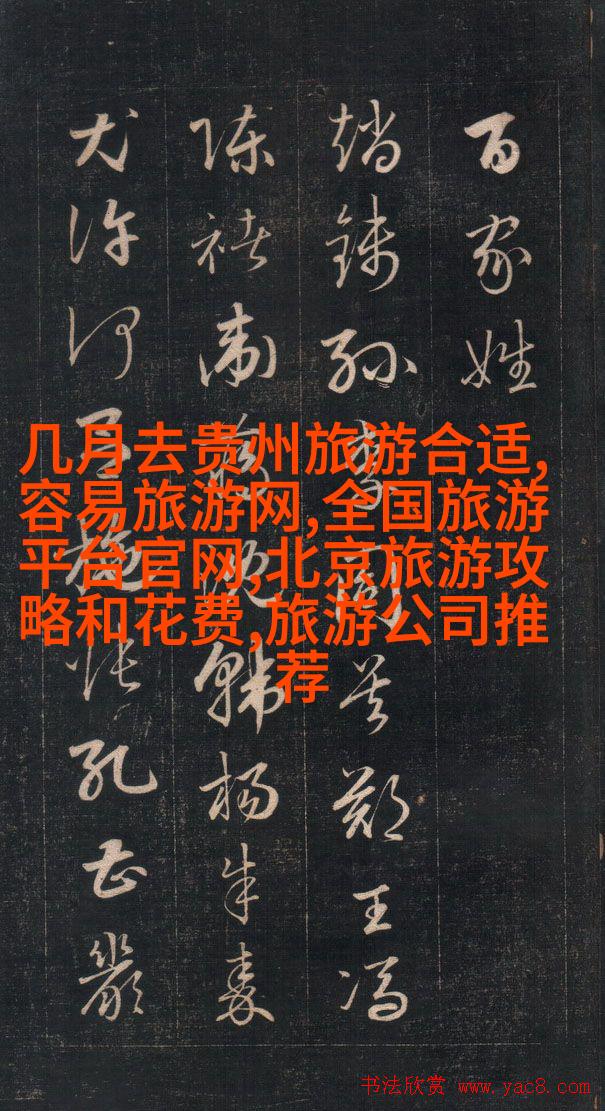 百家姓
趙錢孫李周吳鄭王馮
陳褚衛蔣沈韓楊朱秦
尤許何呂施張孔曹嚴
几月去贵州旅游合适,
容易旅游网,全国旅游
平台官网,北京旅游攻
略和花费,旅游公司推
荐
书法欣赏 www.yac8.com